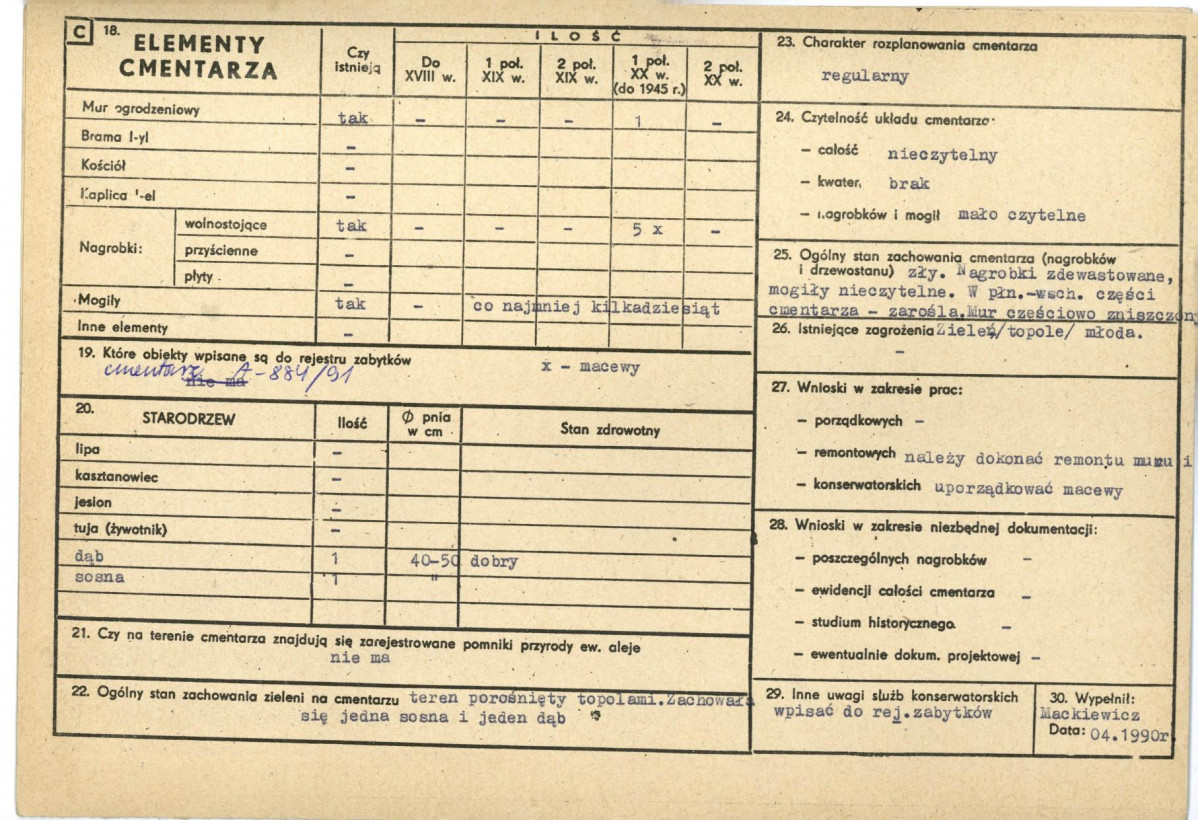 C 18. ELEMENTY CMENTARZA
Czy istnieją
ILOŚĆ
Do XVIII w.
1 poł. XIX w.
2 poł. XIX w.
1 poł. XX w. (do 1945 r.)
2 poł. XX w.
Mur ogrodzeniowy tak - - - 1 -
Brama I-yl -
Kościół -
Kaplica '-el -
Nagrobki:
wolnostojące tak - - - 5 x -
przyścienne -
płyty -
Mogiły tak - co najmniej kilkadziesiąt
Inne elementy -
19. Które obiekty wpisane są do rejestru zabytków x - macewy
cmentarz nie ma A-884/91
20. STARODRZEW Ilość Ø pnia w cm Stan zdrowotny
lipa -
kasztanowiec -
jesion -
tuja (żywotnik) -
dąb 1 40-50 dobry
sosna 1 "
21. Czy na terenie cmentarza znajdują się zarejestrowane pomniki przyrody ew. aleje
nie ma
22. Ogólny stan zachowania zieleni na cmentarzu teren porośnięty topolami.Zachowała
się jedna sosna i jeden dąb
23. Charakter rozplanowania cmentarza
regularny
24. Czytelność układu cmentarza
- całość nieczytelny
- kwater, brak
- nagrobków i mogił mało czytelne
25. Ogólny stan zachowania cmentarza (nagrobków
i drzewostanu) zły. Nagrobki zdewastowane,
mogiły nieczytelne. W płn.-wsch. części
cmentarza - zarośla.Mur częściowo zniszczony
26. Istniejące zagrożenia Zieleń/topole/ młoda.
-
27. Wnioski w zakresie prac:
- porządkowych -
- remontowych należy dokonać remontu muru i
- konserwatorskich uporządkować macewy
28. Wnioski w zakresie niezbędnej dokumentacji:
- poszczególnych nagrobków -
- ewidencji całości cmentarza -
- studium historycznego. -
- ewentualnie dokum. projektowej -
29. Inne uwagi służb konserwatorskich
wpisać do rej.zabytków
30. Wypełnił:
Mackiewicz
Data: 04.1990r